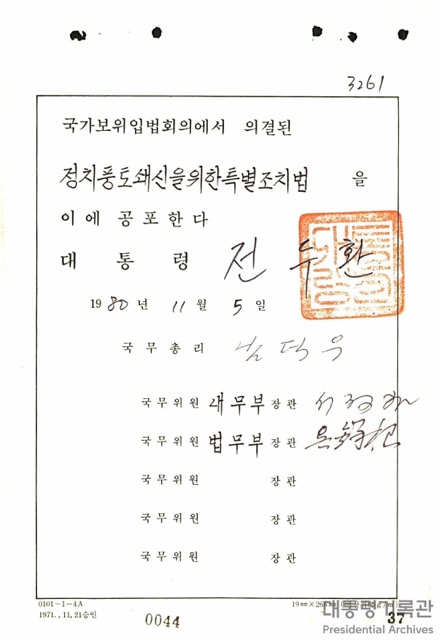 3261
국가보위입법회의에서 의결된
정치풍토쇄신을위한특별조치법 을
이에 공포한다
대통령 전두환
1980년 11월 5일
국무총리 남덕우
국무위원 내무부장관 서정화
국무위원 법무부장관
국무위원 장관
국무위원 장관
국무위원 장관
0101-1-4A
1971., 11, 21승인
0044
19㎜×268㎜
37
대통령기록관
Presidential Archives